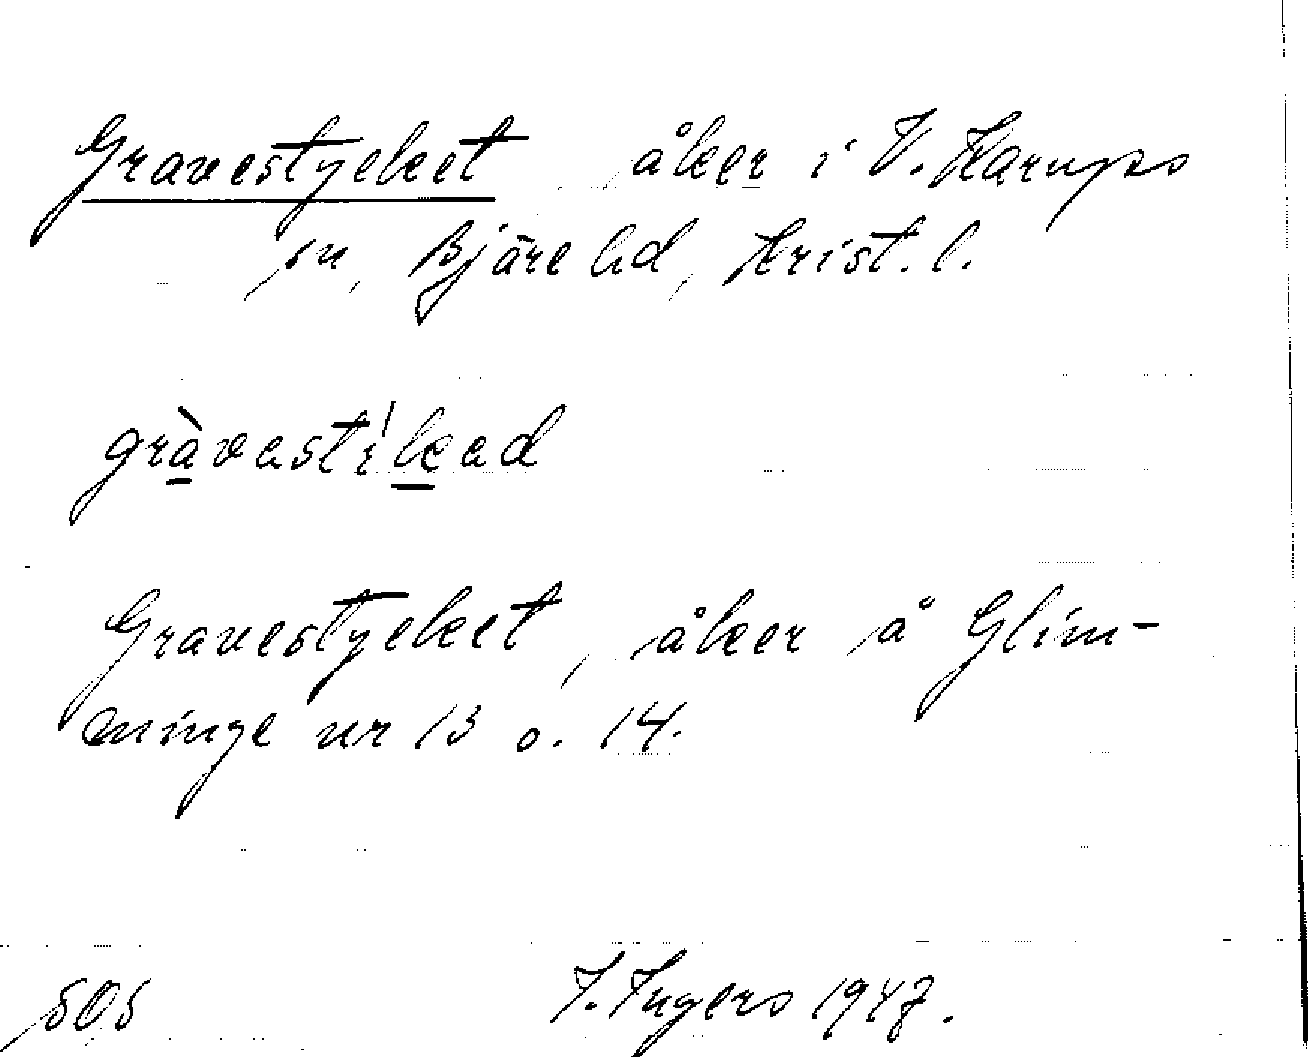 Gravestycket, åker i V. Karups
sn, Bjäre hd, Krist. l.
gràvestỳked
Gravestycket, åker å Glim-
minge nr 13 o. 14.
505 I. Ingers 1947.